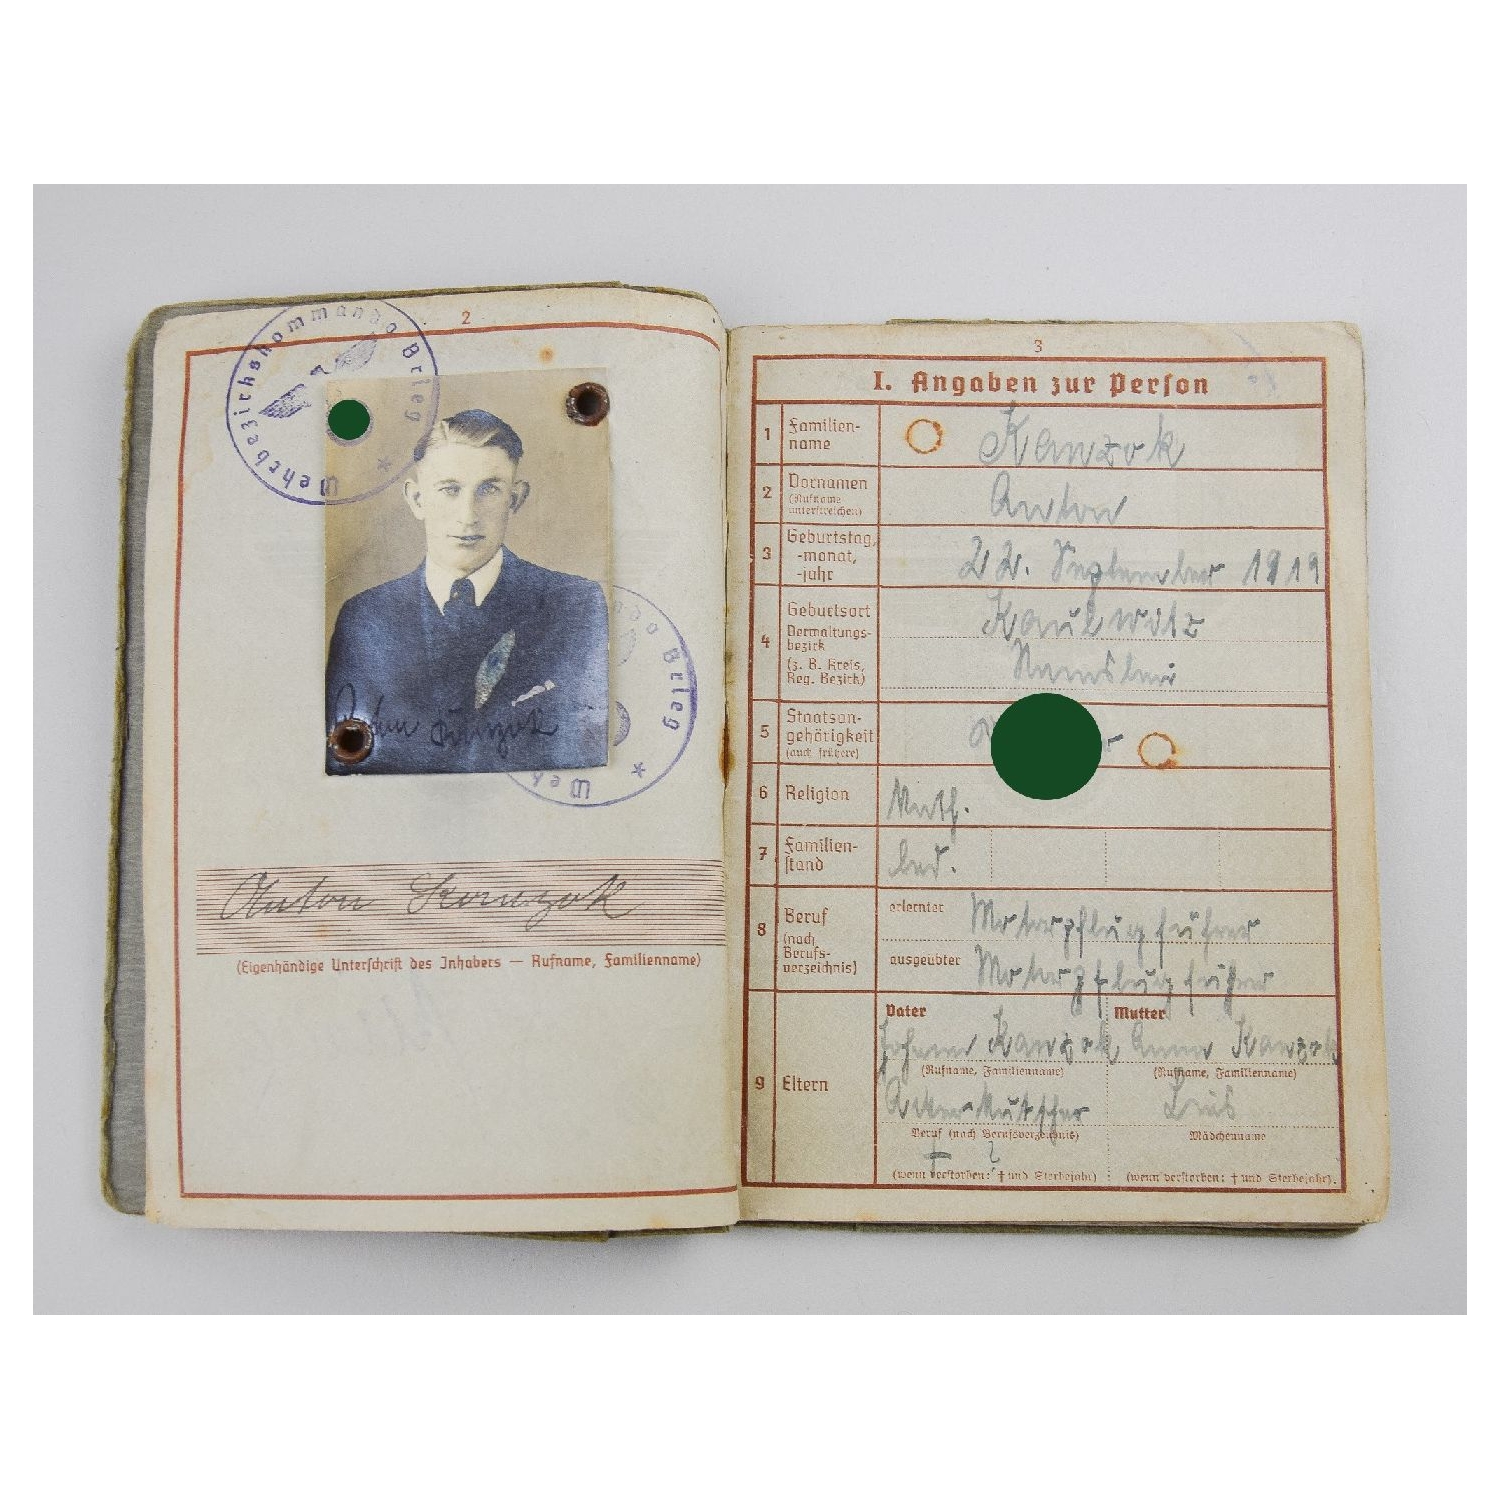 2
Wehrbezirkskommando Brieg
Anton
Anton Kanzok
(Eigenhändige Unterschrift des Inhabers — Rufname, Familienname)
3
I. Angaben zur Person
1 Familien-
name
Kanzok
2 Vornamen
(Rufname
unterstreichen)
Anton
3 Geburtstag,
-monat,
-jahr
22. September 1919
4 Geburtsort
Verwaltungs-
bezirk
(z. B. Kreis,
Reg. Bezirk)
Kaulwitz
Namslau
5 Staatsan-
gehörigkeit
(auch frühere)
6 Religion
kath.
7 Familien-
stand
led.
8 Beruf
(nach
Berufs-
verzeichnis)
erlernter Motorpflugführer
ausgeübter Motorpflugführer
9 Eltern
Vater Mutter
Johann Kanzok Anna Kanzok
(Rufname, Familienname) (Rufname, Familienname)
Ackerkutscher
Beruf (nach Berufsverzeichnis) Mädchenname
† ?
(wenn verstorben: † und Sterbejahr) (wenn verstorben: † und Sterbejahr).